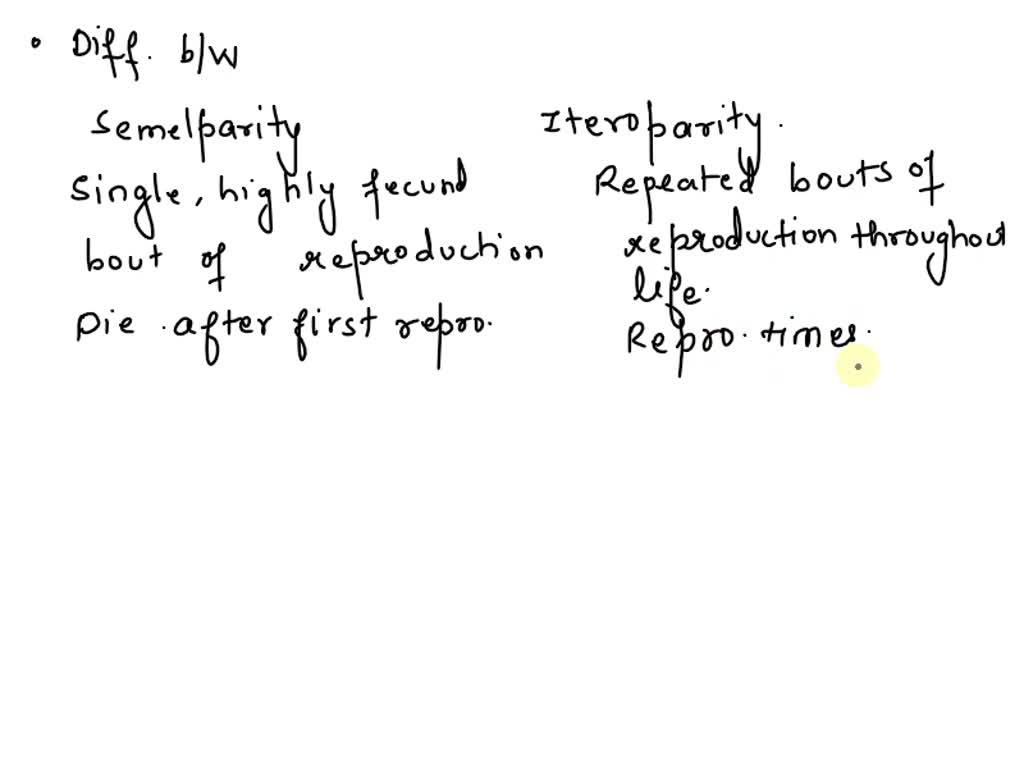 • Diff. b/w
Semelparity
Single, highly fecund
bout of reproduction
Die after first repro.
Iteroparity.
Repeated bouts of
reproduction throughout
life.
Repro. times.